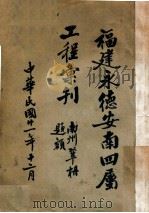 福建永德安南四屬
工程彙刊
南州草梧
題籤
中華民國廿一年十二月